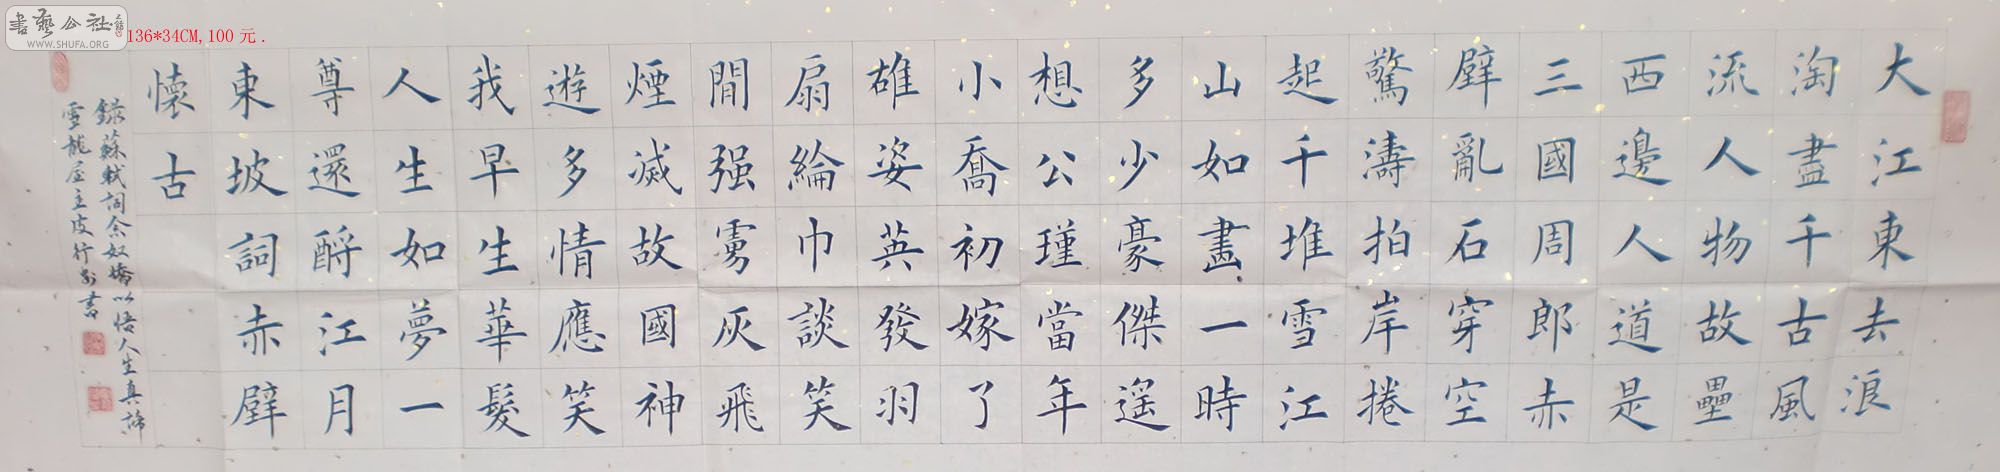 書藝公社
WWW.SHUFA.ORG
136*34CM,100元.
大江東去浪
淘盡千古風
流人物故壘
西邊人道是
三國周郎赤
壁亂石穿空
驚濤拍岸捲
起千堆雪江
山如畫一時
多少豪傑遥
想公瑾當年
小喬初嫁了
雄姿英發羽
扇綸巾談笑
間强雱灰飛
煙滅故國神
遊多情應笑
我早生華髮
人生如夢一
尊還酹江月
東坡詞赤壁
懷古
錄蘇軾詞念奴嬌以悟人生真諦
雪龍屋主皮行如書